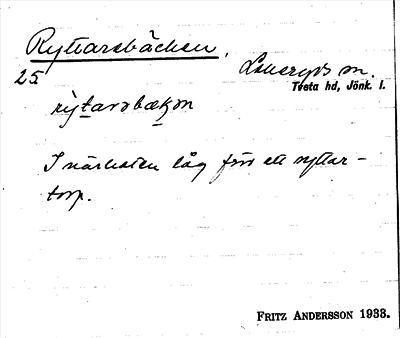 Ryttarsbäcken,
25
Ljusaryds sn.
Tveta hd, Jönk. l.
rytarsbækən
I närheten låg förr ett ryttar-
torp.
FRITZ ANDERSSON 1933.